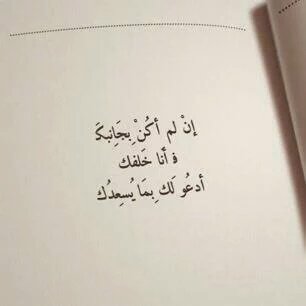 إنْ لم أكُنْ بِجَانِبكَ
فـ أنا خَلفك
أدعُو لَكِ بِمَا يُسعِدُك